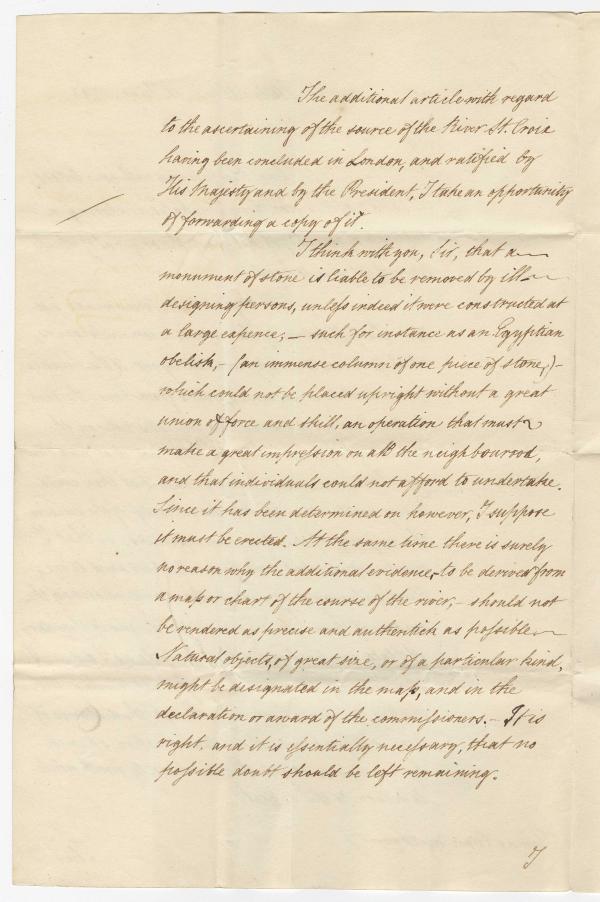 The additional article with regard
to the ascertaining of the source of the River St. Croix
having been concluded in London, and ratified by
His Majesty and by the President, I take an opportunity
of forwarding a copy of it.
I think with you, Sir, that a
monument of stone is liable to be removed by ill
designing persons, unless indeed it were constructed at
a large expence; — such for instance as an Egyptian
obelisk, – (an immense column of one piece of stone,) –
which could not be placed upright without a great
union of force and skill, an operation that must
make a great impression on all the neighbourood,
and that individuals could not afford to undertake.
Since it has been determined on however, I suppose
it must be erected. At the same time there is surely
no reason why the additional evidence, – to be derived from
a map or chart of the course of the river, – should not
be rendered as precise and authentick as possible
Natural objects, of great size, or of a particular kind,
might be designated in the map, and in the
declaration or award of the commissioners. – It is
right, and it is essentially necessary, that no
possible doubt should be left remaining.
I